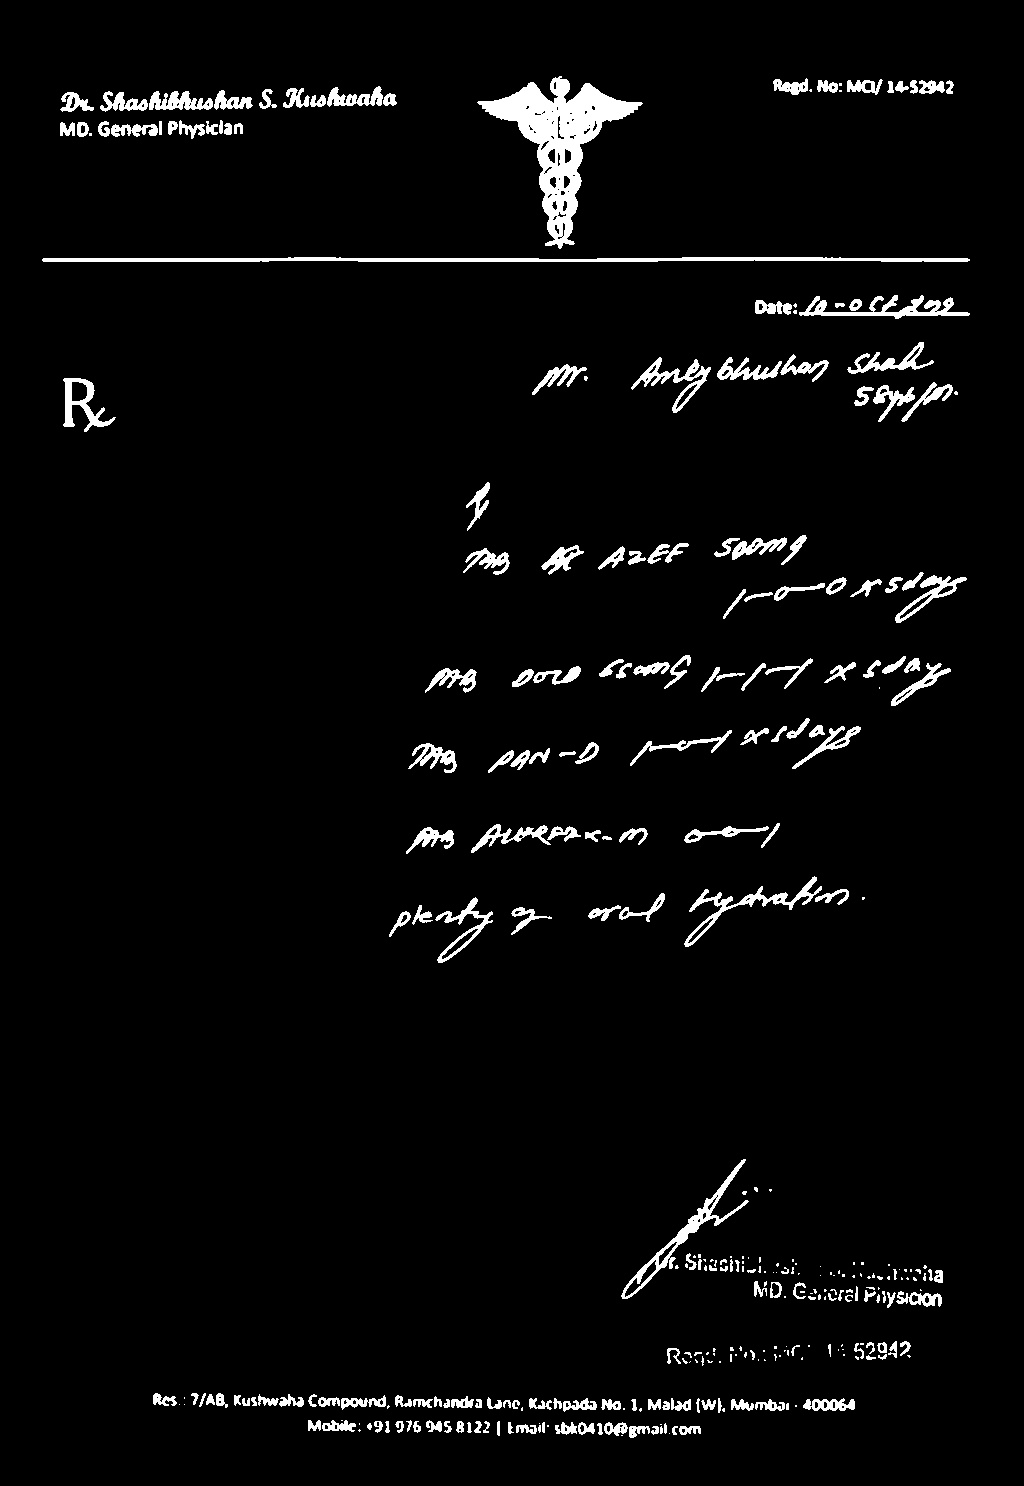 Dr. Shashibhushan S. Kushwaha
MD. General Physician
Regd. No: MCI/ 14-52942
Date: 10-Oct
Rx
Mr. bhushan Shah
58yrs/M.
TAB AZEE 500mg
1-0-0 x 5days
TAB DOLO 650mg 1-1-1 x 5days
TAB PAN-D 1-0-1 x 5days
TAB -M 0-0-1
plenty of oral Hydration.
Dr. Kushwaha
MD. General Physician
Regd. No.: MCI 14-52942
Res.: 7/AB, Kushwaha Compound, Ramchandra Lane, Kachpada No. 1, Malad (W), Mumbai - 400064
Mobile: +91 976 945 8122 | Email: sbk0410@gmail.com